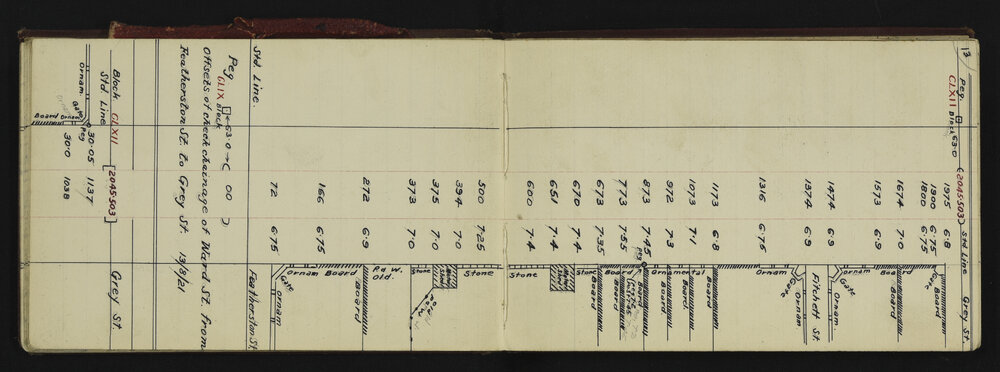 13
Peg. 63.0 (2045.503) Std Line Grey St.
CLXII Block
1975 6.8
1900 6.75 Gate
1800 6.75 Board
1674 7.0 Board
1573 6.9 Ornam
Gate
1474 6.9 Ornam
Fitchett St.
1374 6.9 Ornam
Gate
1316 6.76 Ornam
1173 6.8 Board
1073 7.1 Ornamental Board
972 7.3 Board
873 7.45 Peg Board
773 7.55 Board Board
673 7.35 Stone
670 7.4
651 7.4
600 7.4 Stone
500 7.25 Stone
394 7.0
375 7.0
373 7.0 Stone
P.d W. Old.
272 6.9 Board
166 6.75 Board
Ornam
72 6.75 Gate Ornam
Std. Line. Featherston St.
Peg ←63.0→ ( 00 )
CLIX Block
Offsets of check chainage of Ward St. from
Featherston St. to Grey St. 13/8/21
Block CLXII [2045.503] Grey St.
Std. Line
Ornam. 30.05 1137
Gate Peg
Board Ornam 30.0 1038